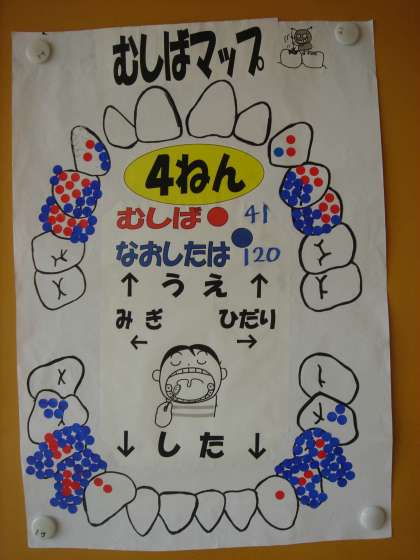 むしばマップ
4ねん
むしば 41
なおしたは 120
↑ うえ ↑
みぎ ひだり
← →
↓ した ↓